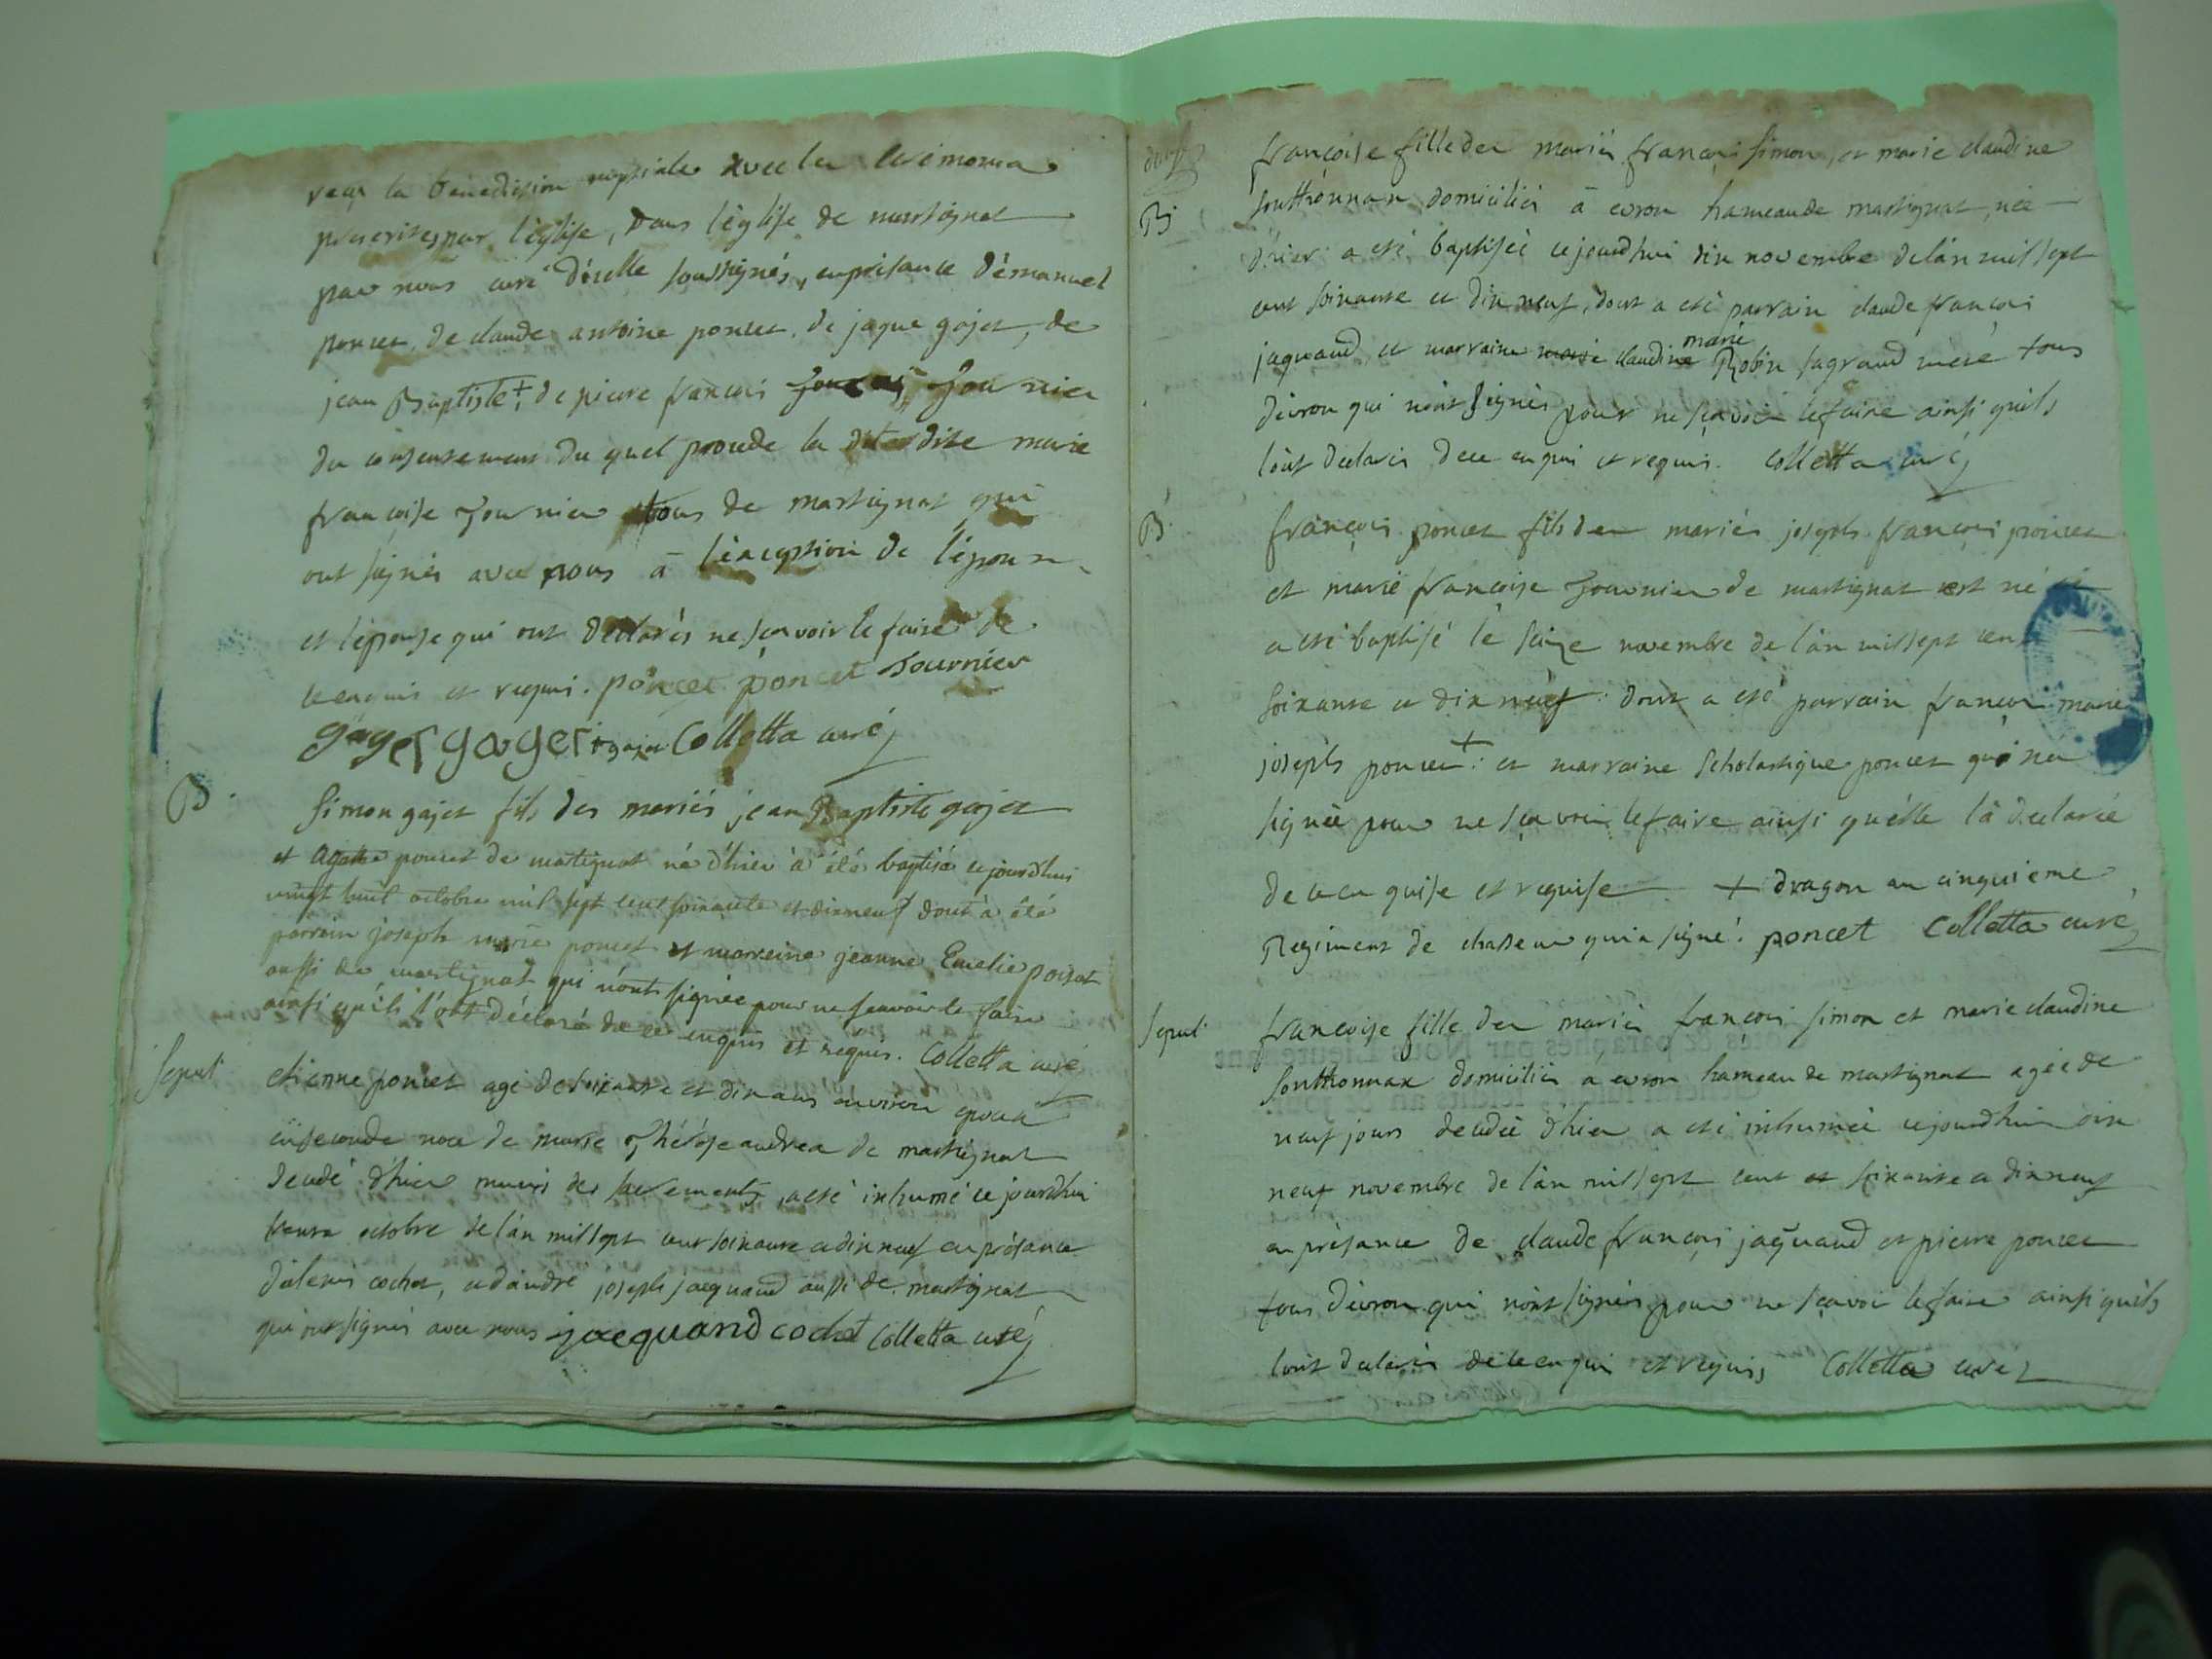 reçu la bénediction nuptiale avec les cérémonies
prescrites par l'église, dans l'église de martignat
par nous curé d'icelle soussignés, en présance d'émanuel
poncet, de claude antoine poncet, de jaque gajet, de
jean Baptiste +, de pierre francois fournier
du consentement du quel procede la dite marie
francoise fournier tous de martignat qui
ont signés avec nous à l'éxception de l'époux
et l'épouse qui ont déclarés ne sçavoir le faire de
ce enquis et requis. poncet poncet fournier
gajet gajet + gajet Colletta curé
B.
Simon gajet fils des mariés jean Baptiste gajet
et Agathe poncet de martignat né d'hier à été baptisé cejourdhui
vingt huit octobre mil sept cent soixante et dixneuf dont à été
parrain joseph marie poncet et marreine jeanne Emelie poizat
aussi de martignat qui n'ont signée pour ne sçavoir le faire
ainsi qu'ils l'ont déclaré de ce enquis et requis. Colletta curé
Sepul.
etienne poncet agé de soixante et dix ans environ epoux
en seconde noce de marie Thérése andrea de martignat
decedé d'hier muni des sacrements, a été inhumé ce jourdhui
trente octobre de l'an mil sept cent soixante et dix neuf en présance
d'alexis cochet, et d'andré joseph jacquand aussi de martignat
qui ont signés avec nous jacquand cochet Colletta curé
B.
francoise fille des mariés francois simon, et marie claudine
southonnax domiciliés à evron hameau de martignat, née
d'hier a été baptisée cejourdhui dix novembre de l'an mil sept
cent soixante et dix neuf, dont a été parrain claude francois
jaquand et marraine marie claudine marie Robin sa grand mère tous
d'évron qui n'ont signés pour ne sçavoir le faire ainsi qu'ils
l'ont declarés de ce enquis et requis. Colletta curé
B.
françois poncet fils des mariés joseph françois poncet
et marie françoise fournier de martignat est né et
a été baptisé le seize novembre de l'an mil sept cent
soixante et dix neuf: dont a été parrain francois marie
joseph poncet + : et marraine Scholastique poncet qui n'a
signée pour ne sçavoir le faire ainsi qu'elle l'à declarée
de ce enquise et requise + dragon au cinquieme
Regiment de chasseur qui a signé. poncet Colletta curé
Sepul.
francoise fille des mariés francois simon et marie claudine
southonnax domiciliés a evron hameau de martignat agée de
neuf jours decedée d'hier a été inhumée cejourdhui dix
neuf novembre de l'an mil sept cent et soixante et dix neuf
en présance de claude françois jaquand et pierre poncet
tous d'évron qui n'ont signés pour ne sçavoir le faire ainsi qu'ils
l'ont declarés de ce enquis et requis, Colletta curé